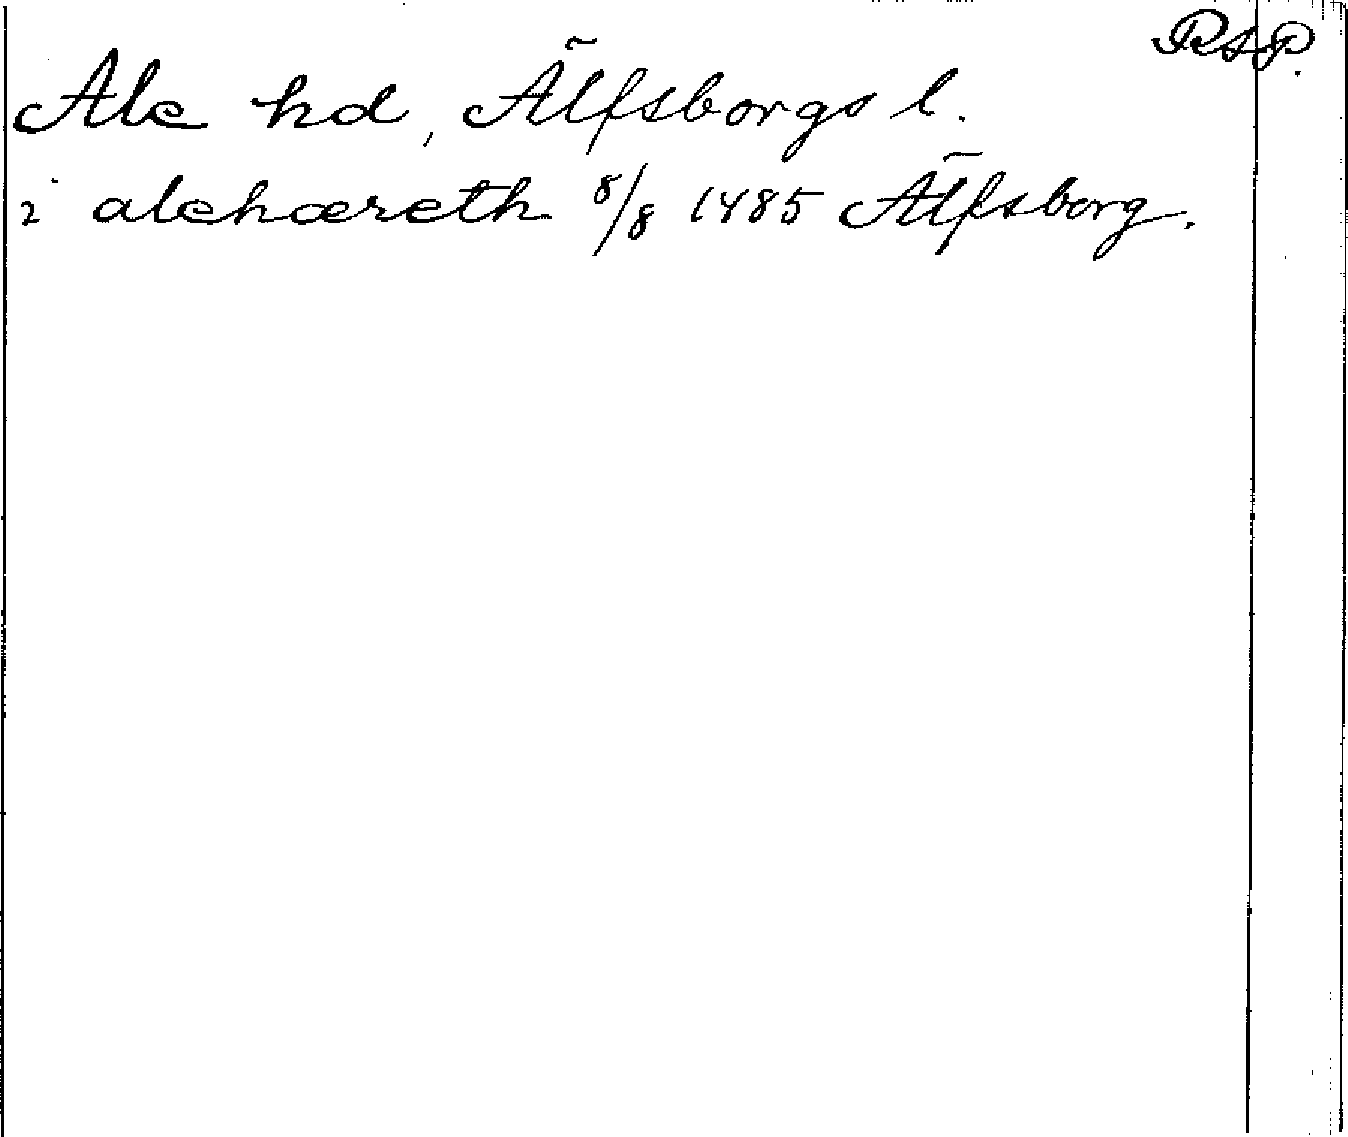 RAP.
Ale hd, Älfsborgs l.
i alehæreth 8/8 1485 Älfsborg.